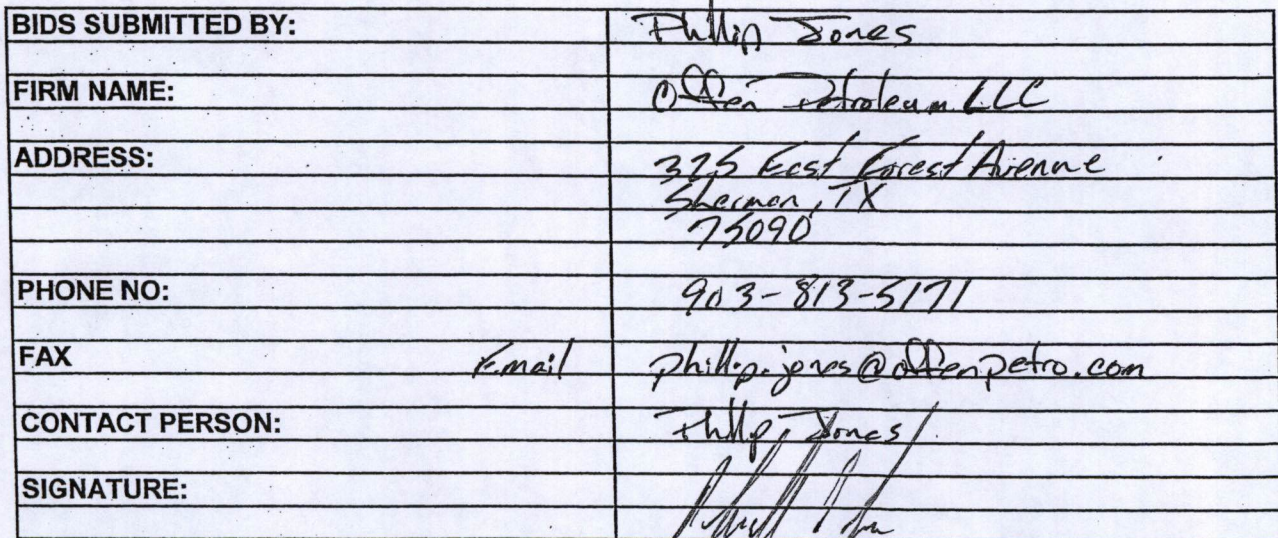 BIDS SUBMITTED BY: Phillip Jones
FIRM NAME: Offen Petroleum LLC
ADDRESS: 325 East Forest Avenue
Sherman, TX
75090
PHONE NO: 903-813-5171
FAX Email phillip.jones@offenpetro.com
CONTACT PERSON: Phillip Jones
SIGNATURE: